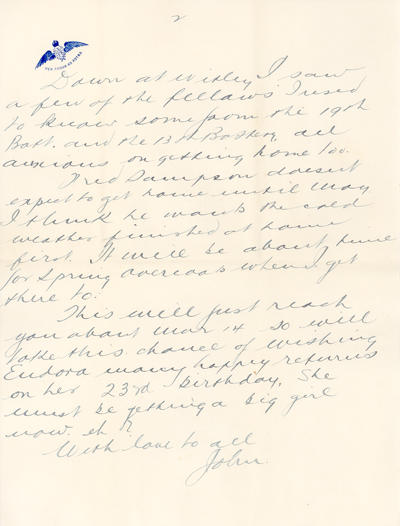 2
PER ARDUA AD ASTRA
Down at Witley I saw
a few of the fellows I used
to know some from the 19th
Batt. and the 13th Battery, all
anxious on getting home too.
Fred Sampson doesnt
expect to get home until May
I think he wants the cold
weather finished at home
first. It will be about time
for Spring overcoats when I get
there to.
This will just reach
you about Mar 14 so will
take this chance of wishing
Eudora many happy returns
on her 23rd birthday. She
must be getting a big girl
now. eh?
With love to all
John.